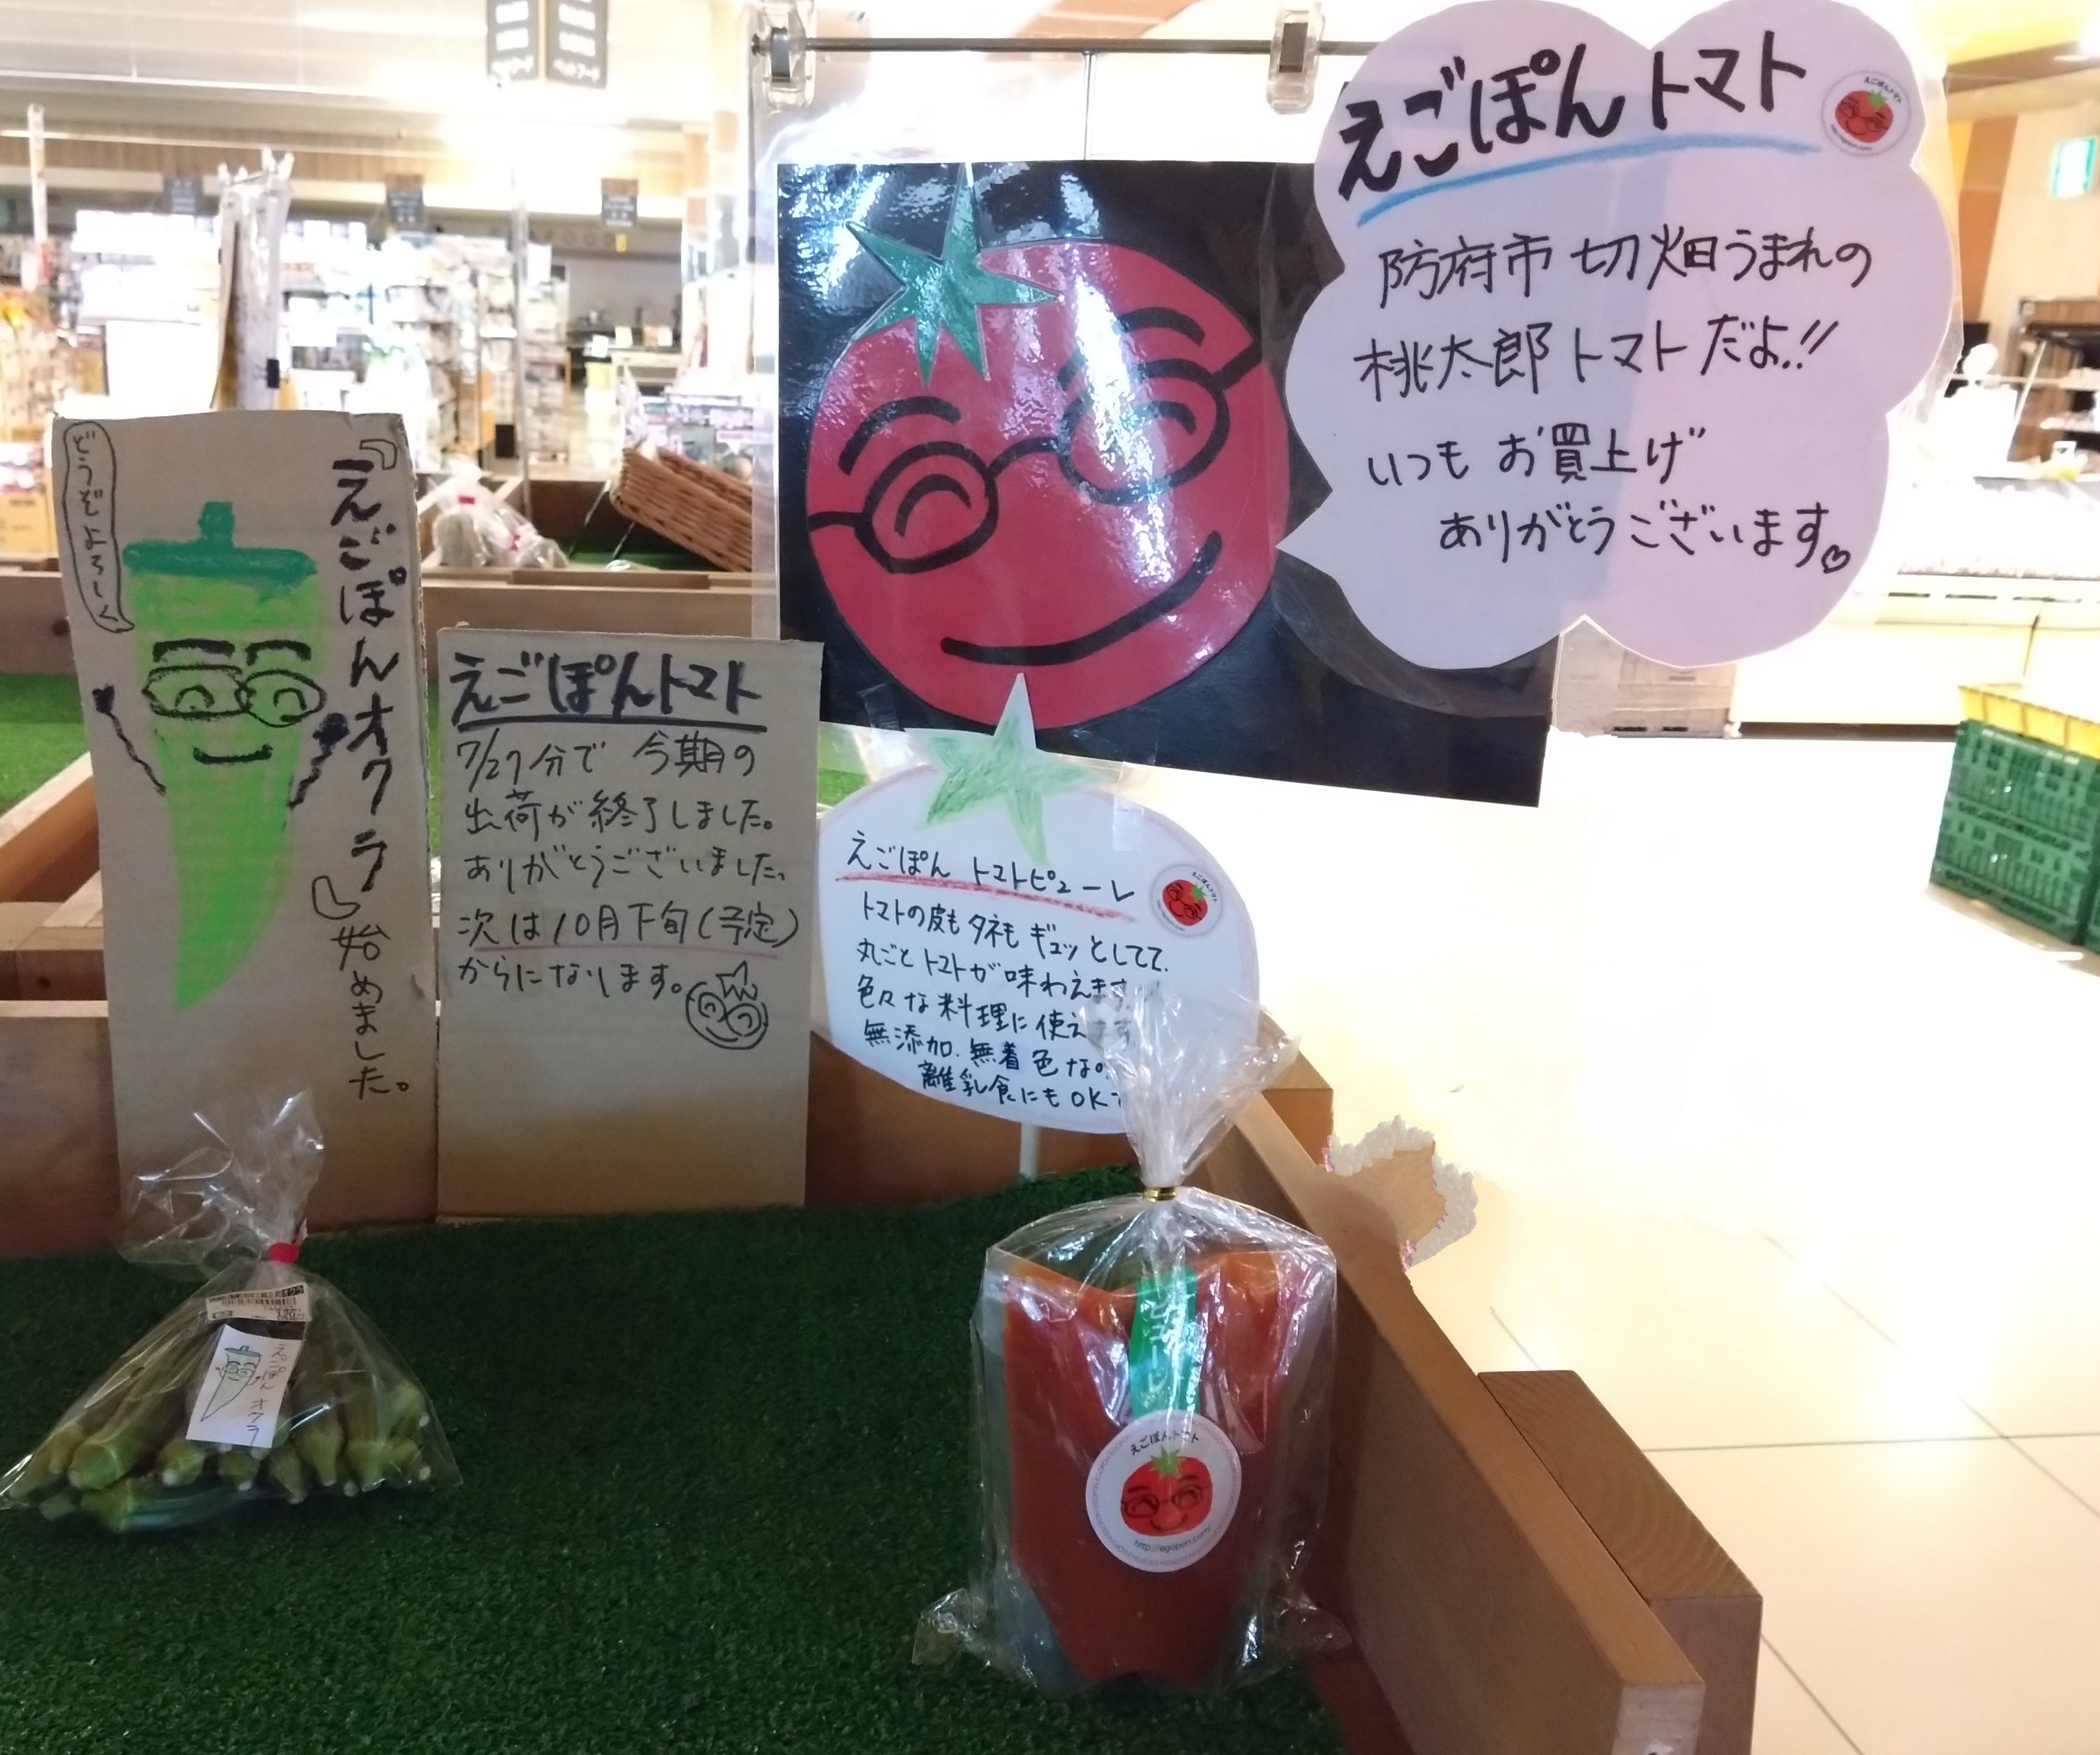 えごぽんトマト
防府市切畑うまれの
桃太郎トマトだよ!!
いつもお買上げ
ありがとうございます♡
どうぞよろしく
『えごぽんオクラ』始めました。
えごぽんトマト
7/27分で 今期の
出荷が終了しました。
ありがとうございました。
次は10月下旬(予定)
からになります。
えごぽん トマトピューレ
トマトの皮もタネもギュッとしてて、
丸ごとトマトが味わえます
色々な料理に使えます
無添加.無着色な
離乳食にもOK
えごぽんトマト
えごぽん オクラ
えごぽんトマト